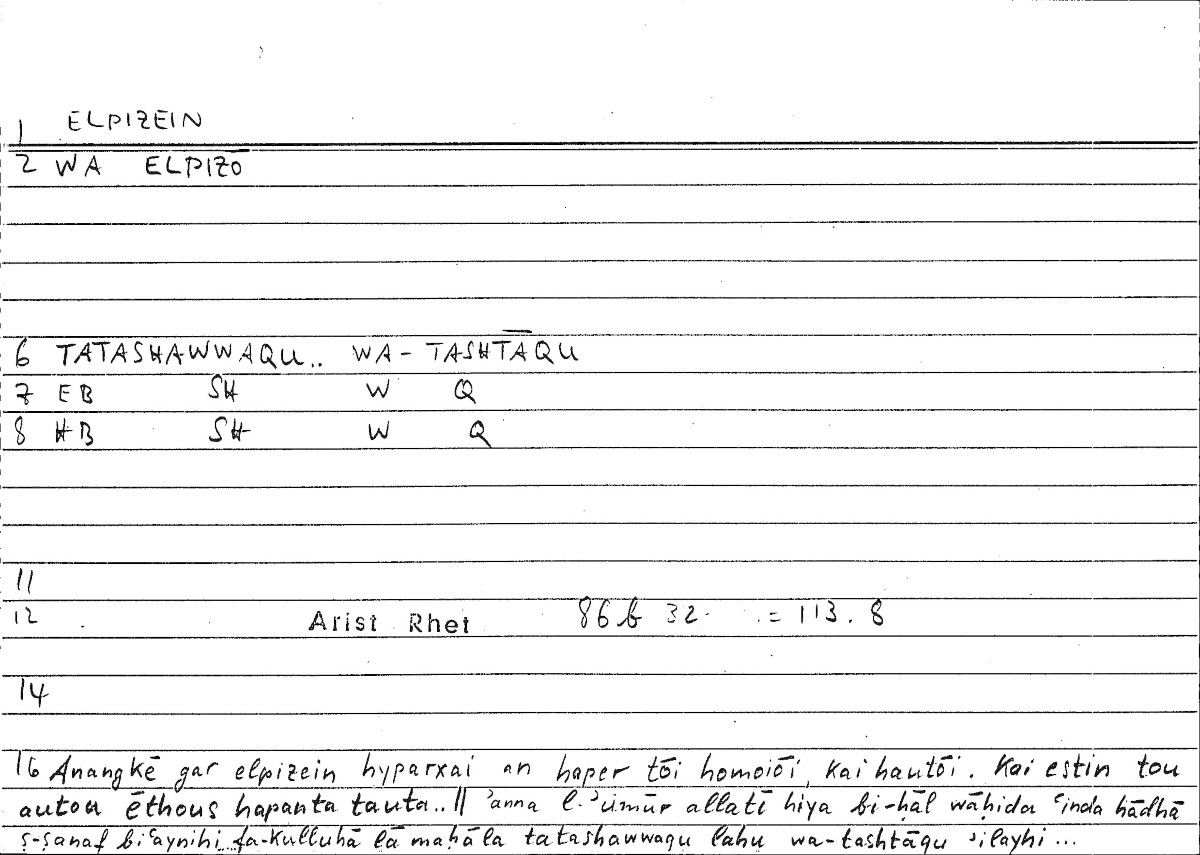 1 ELPIZEIN
2 WA ELPIZŌ
6 TATASHAWWAQU.. WA- TASHTĀQU
7 EB SH W Q
8 HB SH W Q
11
12 Arist Rhet 86b 32 = 113.8
14
16 Anangkē gar elpizein hyparxai an haper tōi homoiōi, kai hautōi. Kai estin tou
autou ēthous hapanta tauta..|| ʾanna l-ʾumūr allatī hiya bi-ḥāl wāḥida ʿinda hādhā
ṣ-ṣanaf biʿaynihi.. fa-kulluhā lā maḥāla tatashawwaqu lahu wa-tashtāqu ʾilayhi...